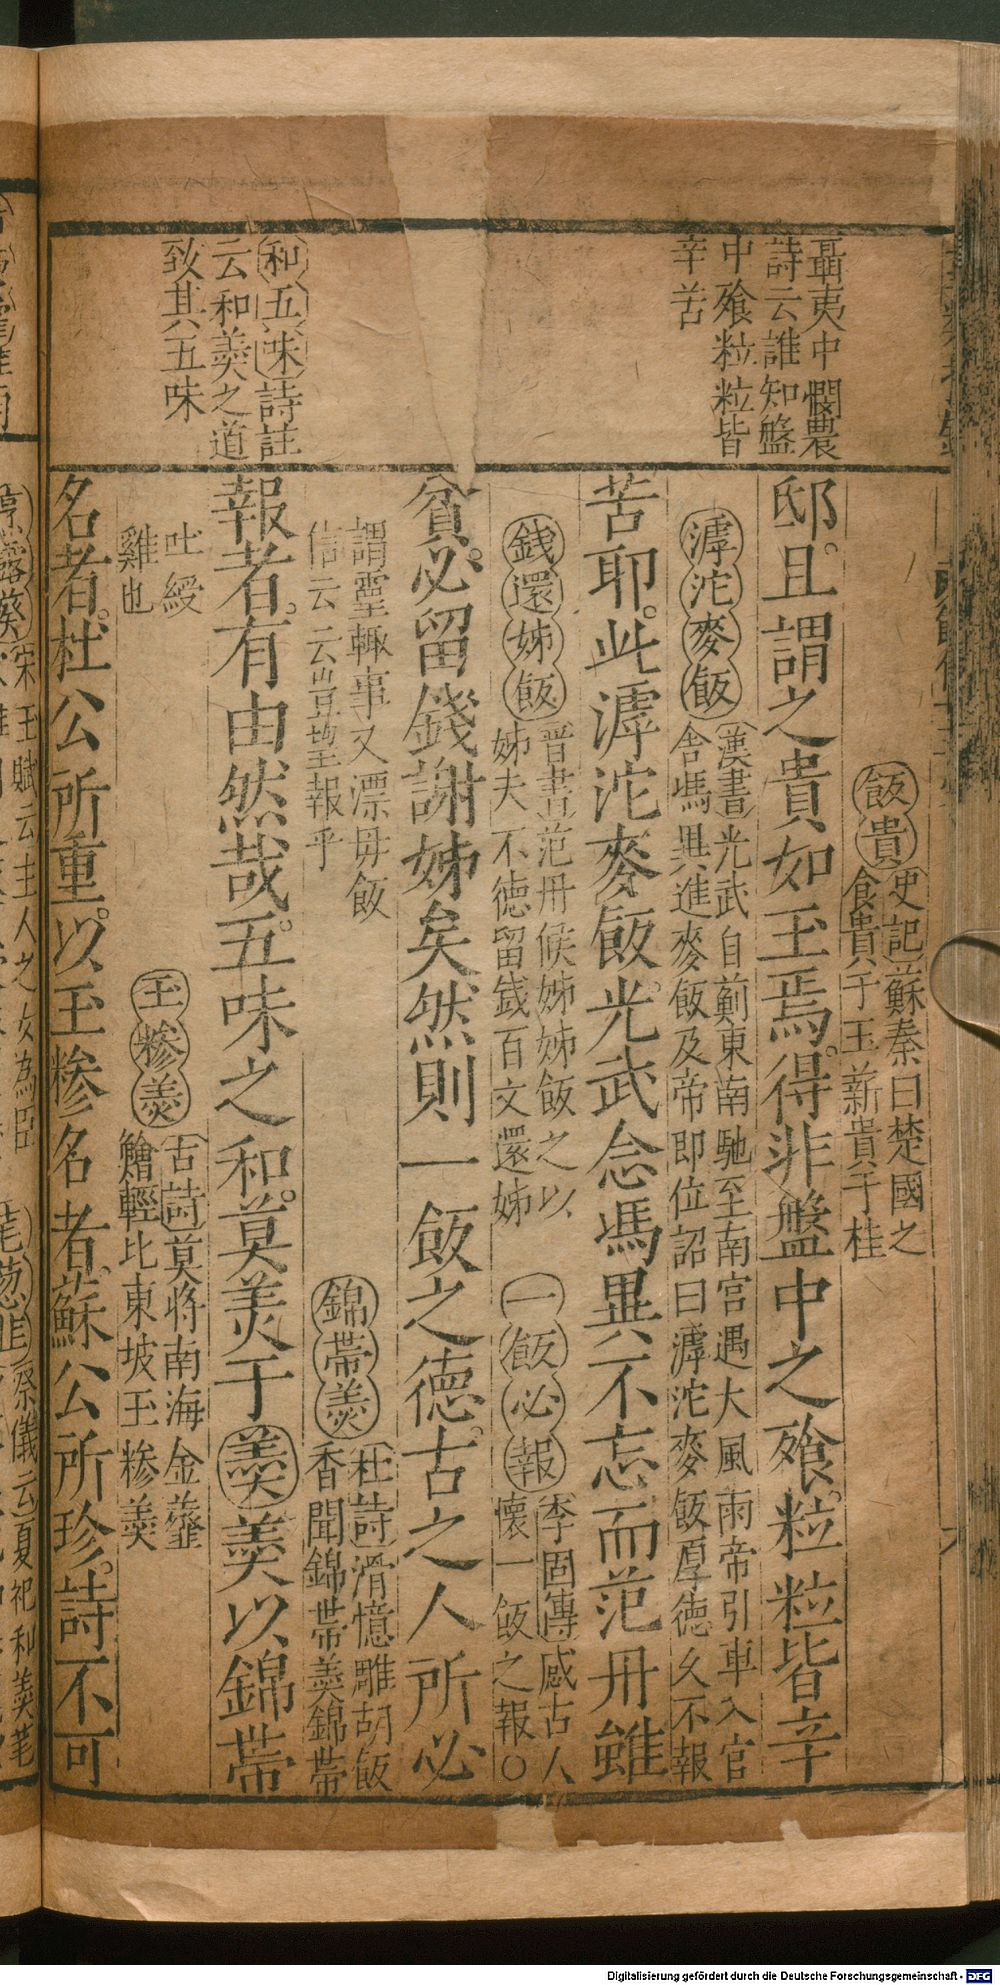 聶夷中憫農
詩云誰知盤
中飱粒粒皆
辛苦
和五味詩註
云和羹之道
致其五味
飯貴
史記蘇秦曰楚國之
食貴于玉薪貴于桂
邸且謂之貴如玉焉得非盤中之飱粒粒皆辛
滹沱麥飯
漢書光武自薊東南馳至南宮遇大風雨帝引車入官
舍馮異進麥飯及帝即位詔曰滹沱麥飯厚德久不報
苦耶此滹沱麥飯光武念馮異不忘而范冊雖
錢還姊飯
晉書范冊候姊姊飯之以
姊夫不德留錢百文還姊
一飯必報
李固傳感古人
懷一飯之報○
貧必留錢謝姊矣然則一飯之德古之人所必
謂靈輒事又漂母飯
信云云豈望報乎
錦帶羹
杜詩滑憶雕胡飯
香聞錦帶羹錦帶
報者有由然哉五味之和莫美于羹羹以錦帶
吐綬
雞也
玉糝羹
古詩莫將南海金虀
鱠輕比東坡玉糝羹
名者杜公所重以玉糝名者蘇公所珍詩不可
Digitalisierung gefördert durch die Deutsche Forschungsgemeinschaft - DFG